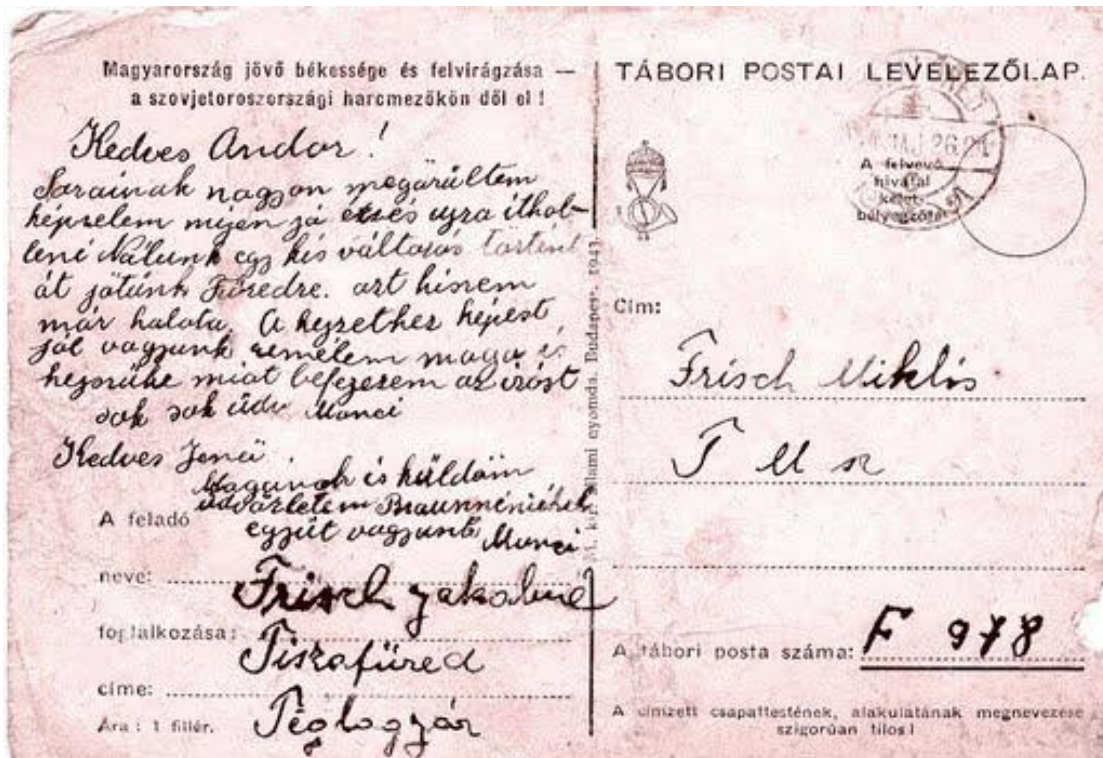 Magyarország jövő békessége és felvirágzása —
a szovjetoroszországi harcmezőkön dől el !
Kedves Andor !
Sorainak nagyon megörültem
képzelem mijen jó érzés ujra ithol-
leni Nálunk egy kis változás történt
át jötünk Füredre. azt hiszem
már halota. A hejzethez képest
jól vagyunk remélem maga is
hejszüke miat befejezem az irást
sok sok üdv Manci
Kedves Jenő
Magának is küldöm
üdvözletem
együt vagyunk Manci
A feladó
neve: Frisch Jakabné
foglalkozása: Tiszafüred
címe:
Ára : 1 fillér. Téglagyár
M. kir. állami nyomda. Budapest. 1943.
TÁBORI POSTAI LEVELEZŐLAP.
A felvevő
hivatal
kelet-
bélyegzője
MÁJ. 26
Cím:
Frisch Miklós
T M sz
A tábori posta száma: F 978
A címzett csapattestének, alakulatának megnevezése
szigorúan tilos !